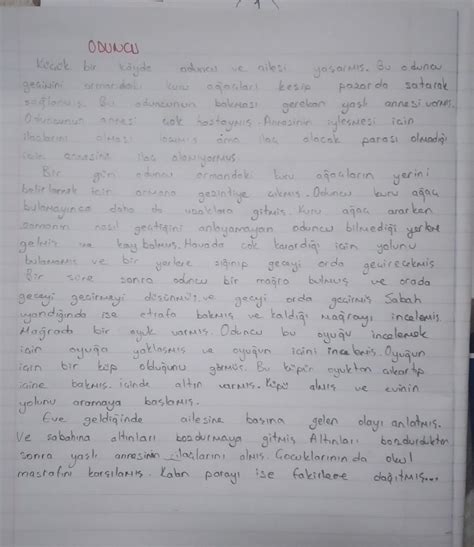 ODUNCU
Küçük bir köyde oduncu ve ailesi yaşarmış. Bu oduncu
geçimini ormandaki kuru ağaçları kesip pazarda satarak
sağlarmış. Bu oduncunun bakması gereken yaşlı annesi varmış.
Oduncunun annesi çok hastaymış. Annesinin iyileşmesi için
ilaçlarını alması lazımmış ama ilaç alacak parası olmadığı
için annesine ilaç alamıyormuş.
Bir gün oduncu ormandaki kuru ağaçların yerini
belirlemek için ormana gezintiye çıkmış. Oduncu kuru ağaç
bulamayınca daha da uzaklara gitmiş. Kuru ağaç ararken
zamanın nasıl geçtiğini anlıyamayan oduncu bilmediği yerlere
gelmiş ve kaybolmuş. Havada çok karardığı için yolunu
bulamamış ve bir yerlere sığınıp geceyi orda geçirecekmiş
Bir süre sonra oduncu bir mağra bulmuş ve orada
geceyi geçirmeyi düşünmüş ve geceyi orda geçirmiş Sabah
uyandığında ise etrafa bakmış ve kaldığı mağrayı incelemiş
Mağrada bir oyuk varmış. Oduncu bu oyuğu incelemek
için oyuğa yaklaşmış ve oyuğun içini incelemiş. Oyuğun
için bir küp olduğunu görmüş. Bu küpü oyuktan çıkartıp
içine bakmış. içinde altın varmış. Küpü almış ve evinin
yolunu aramaya başlamış.
Eve geldiğinde ailesine başına gelen olayı anlatmış.
Ve sabahına altınları bozdurmaya gitmiş Altınları bozdurduktan
sonra yaşlı annesinin ilaçlarını almış. Çocuklarının da okul
masrafını karşılamış. Kalan parayı ise fakirlere dağıtmış...